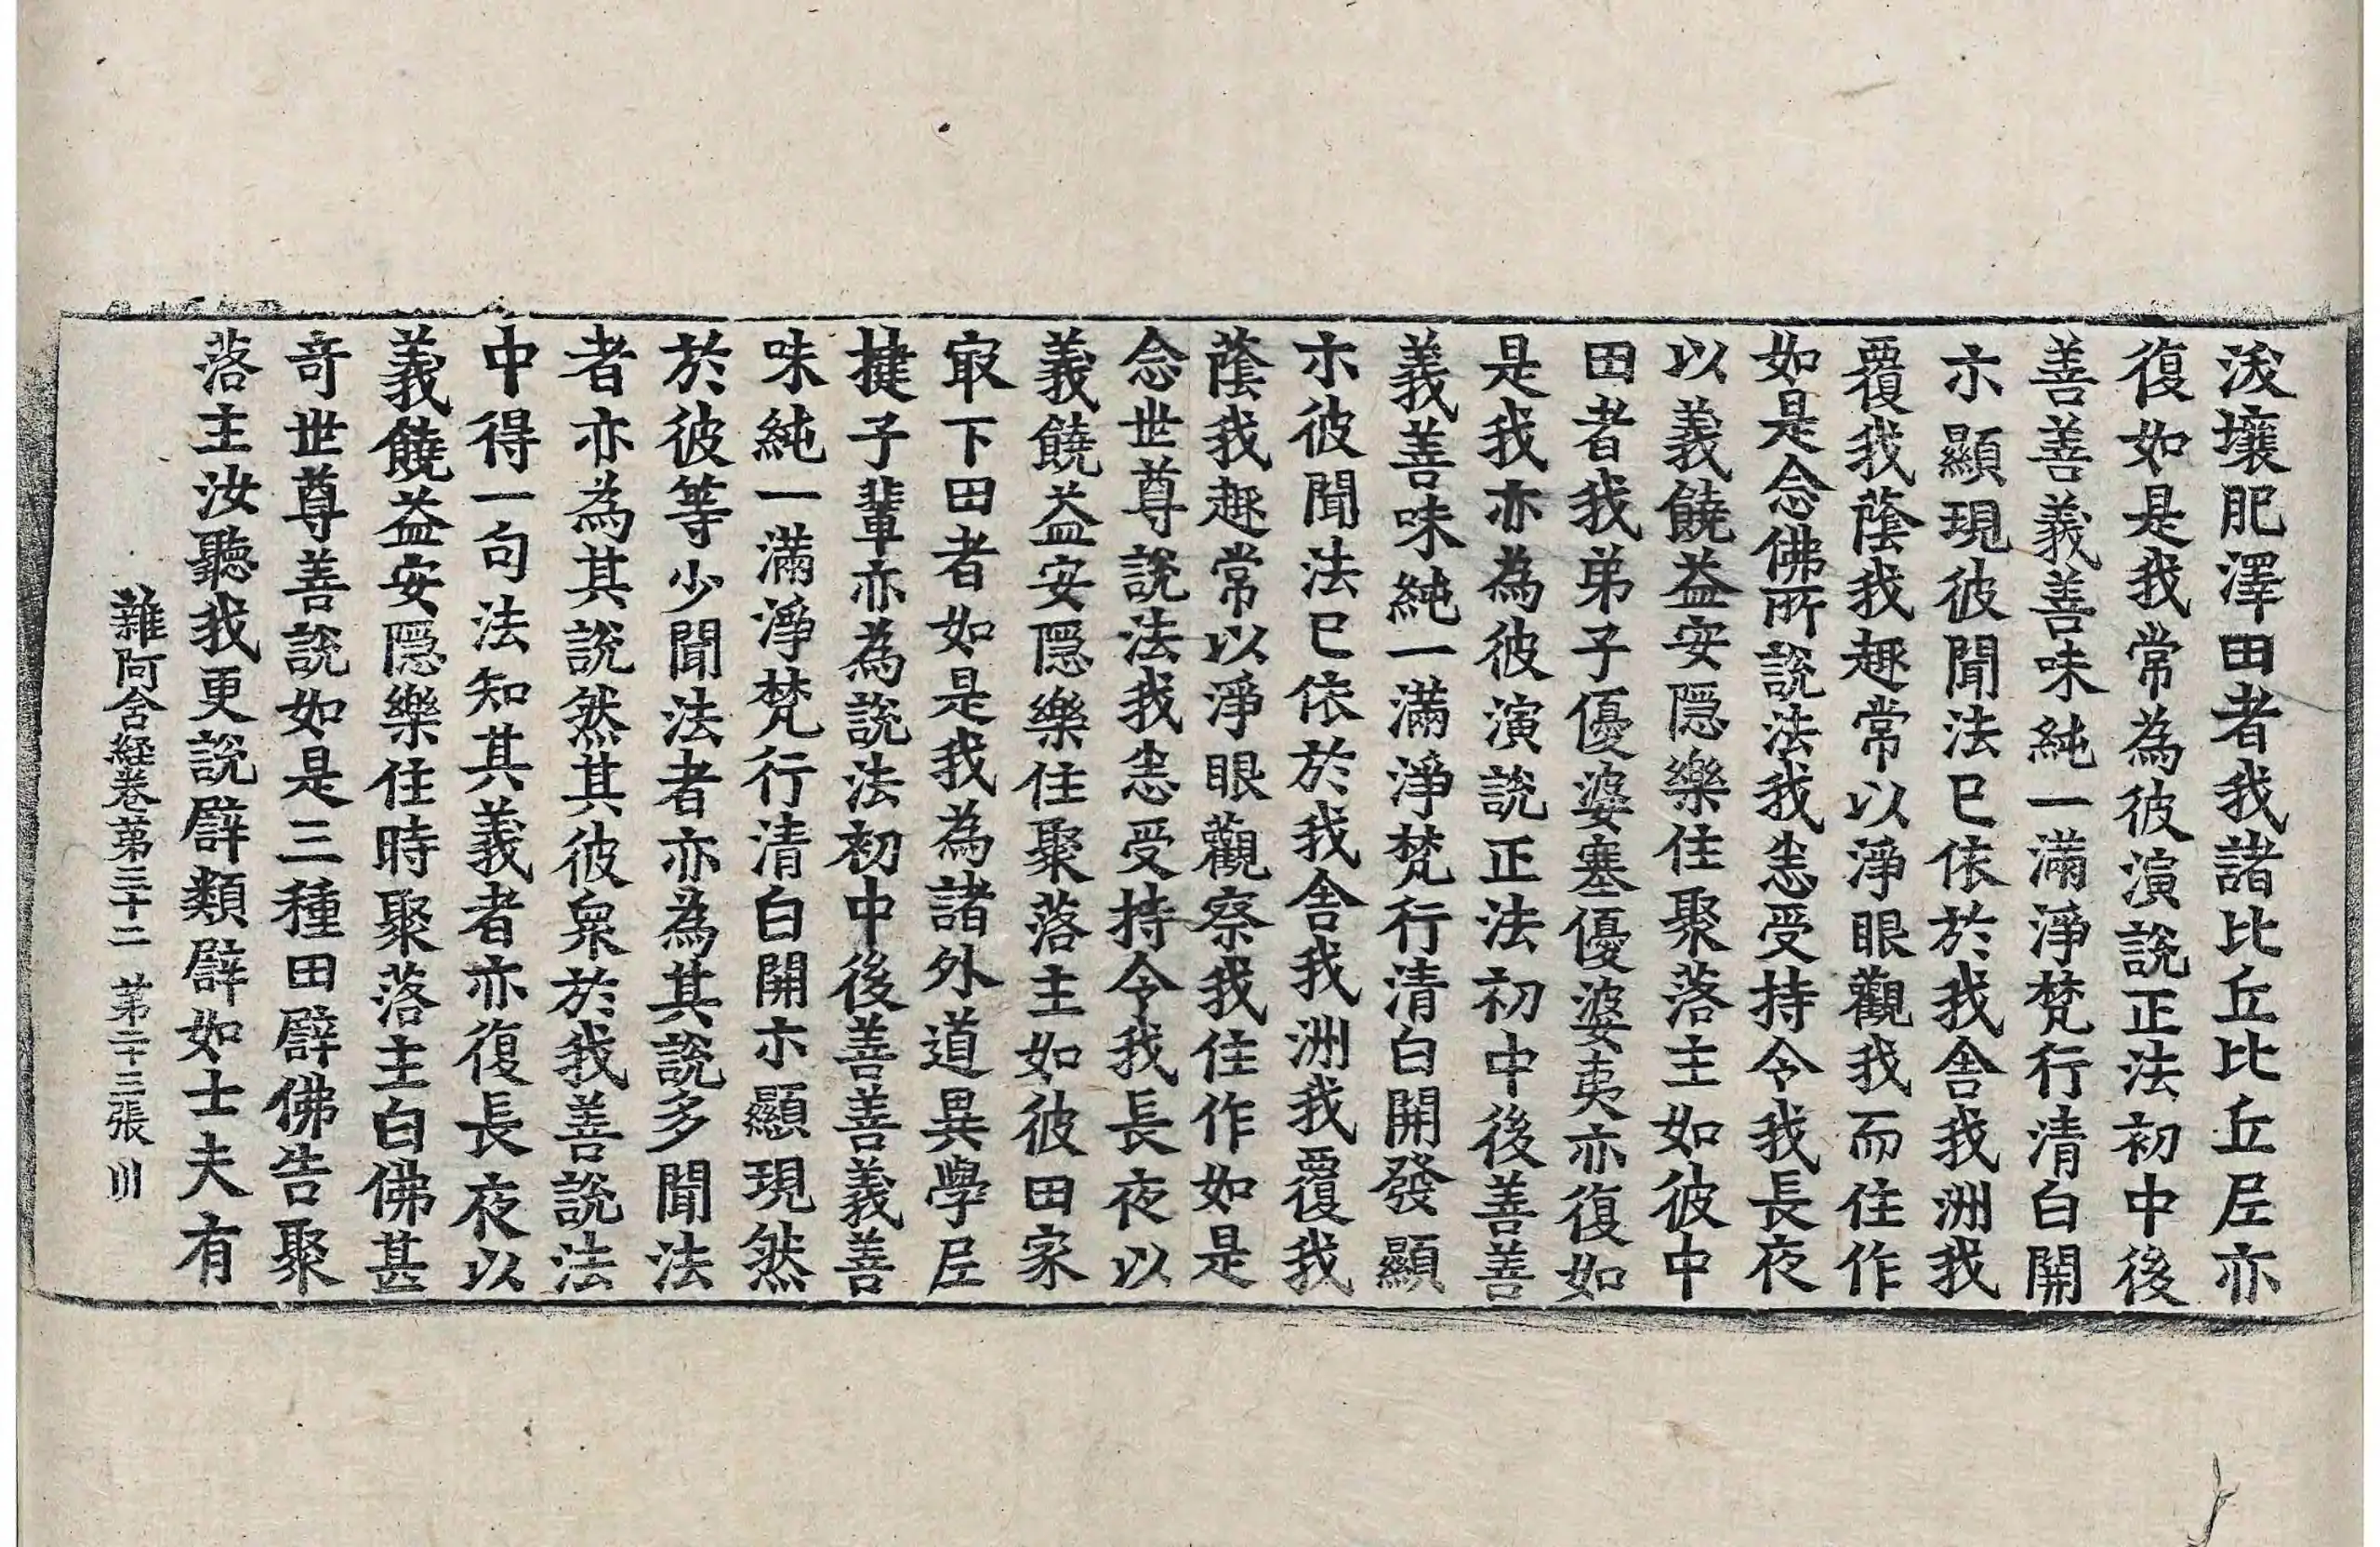 沃壤肥澤田者我諸比丘比丘尼亦
復如是我常為彼演說正法初中後
善善義善味純一滿淨梵行清白開
示顯現彼聞法已依於我舍我洲我
覆我蔭我趣常以淨眼觀我而住作
如是念佛所說法我悉受持令我長夜
以義饒益安隱樂住聚落主如彼中
田者我弟子優婆塞優婆夷亦復如
是我亦為彼演說正法初中後善善
義善味純一滿淨梵行清白開發顯
示彼聞法已依於我舍我洲我覆我
蔭我趣常以淨眼觀察我住作如是
念世尊說法我悉受持令我長夜以
義饒益安隱樂住聚落主如彼田家
㝡下田者如是我為諸外道異學尼
揵子輩亦為說法初中後善善義善
味純一滿淨梵行清白開示顯現然
於彼等少聞法者亦為其說多聞法
者亦為其說然其彼衆於我善說法
中得一句法知其義者亦復長夜以
義饒益安隱樂住時聚落主白佛甚
奇世尊善說如是三種田譬佛告聚
落主汝聽我更說譬類譬如士夫有
雜阿含経卷苐三十二 苐二十三張 川